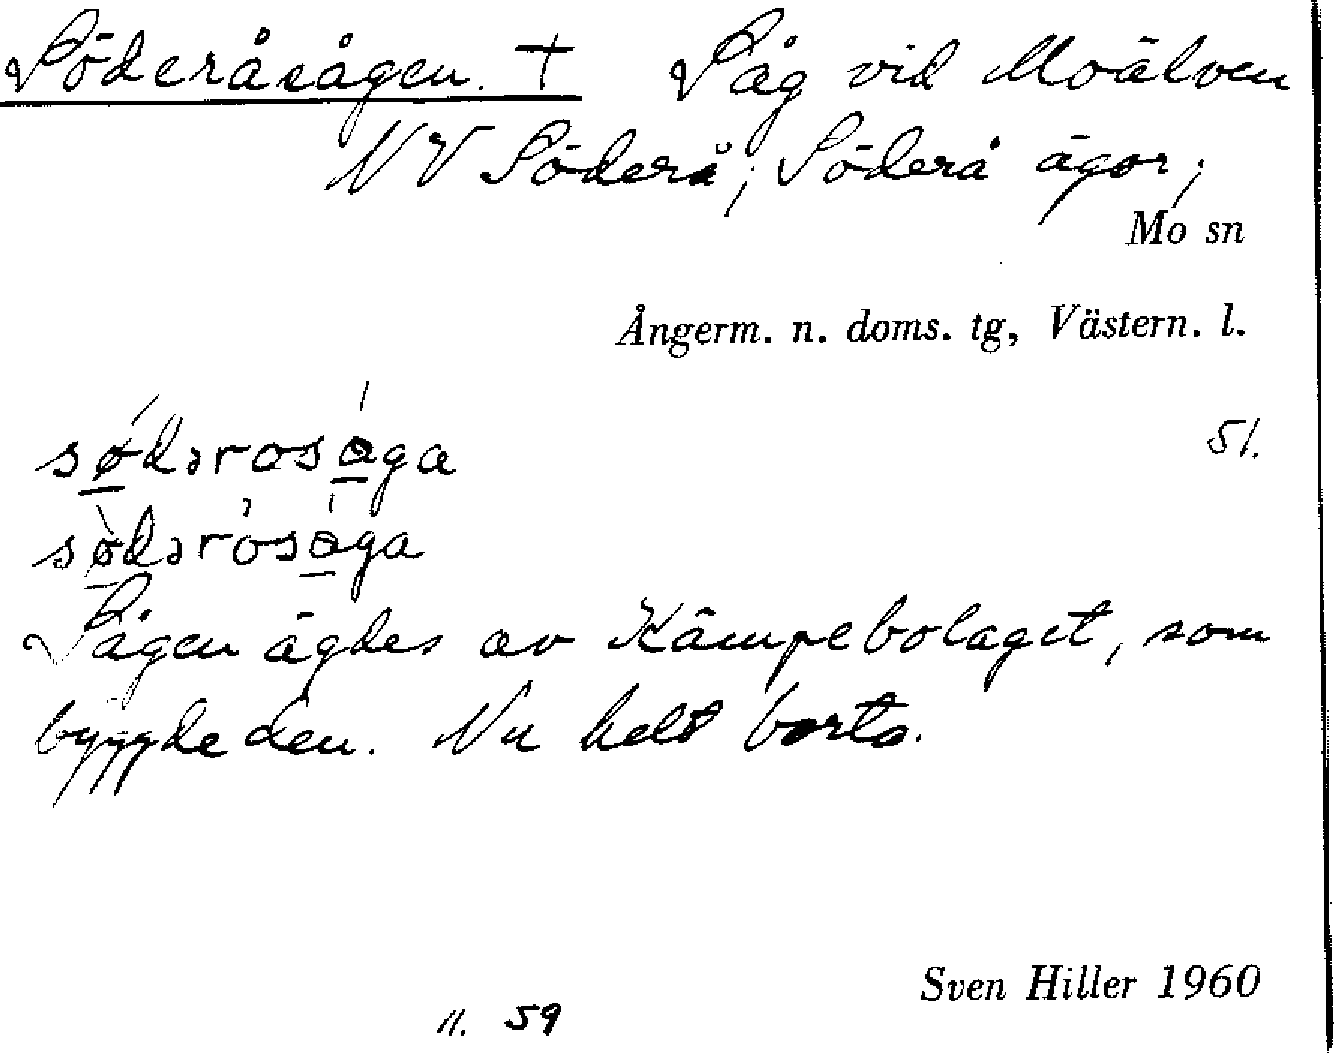 Söderåsågen. † Såg vid Moälven
NV Söderå; Söderå ägor;
Mo sn
Ångerm. n. doms. tg, Västern. l.
51.
sǿdərosåga
sø̀dərósåga
Sågen ägdes av Kämpebolaget, som
byggde den. Nu helt borta.
Sven Hiller 1960
11. 59